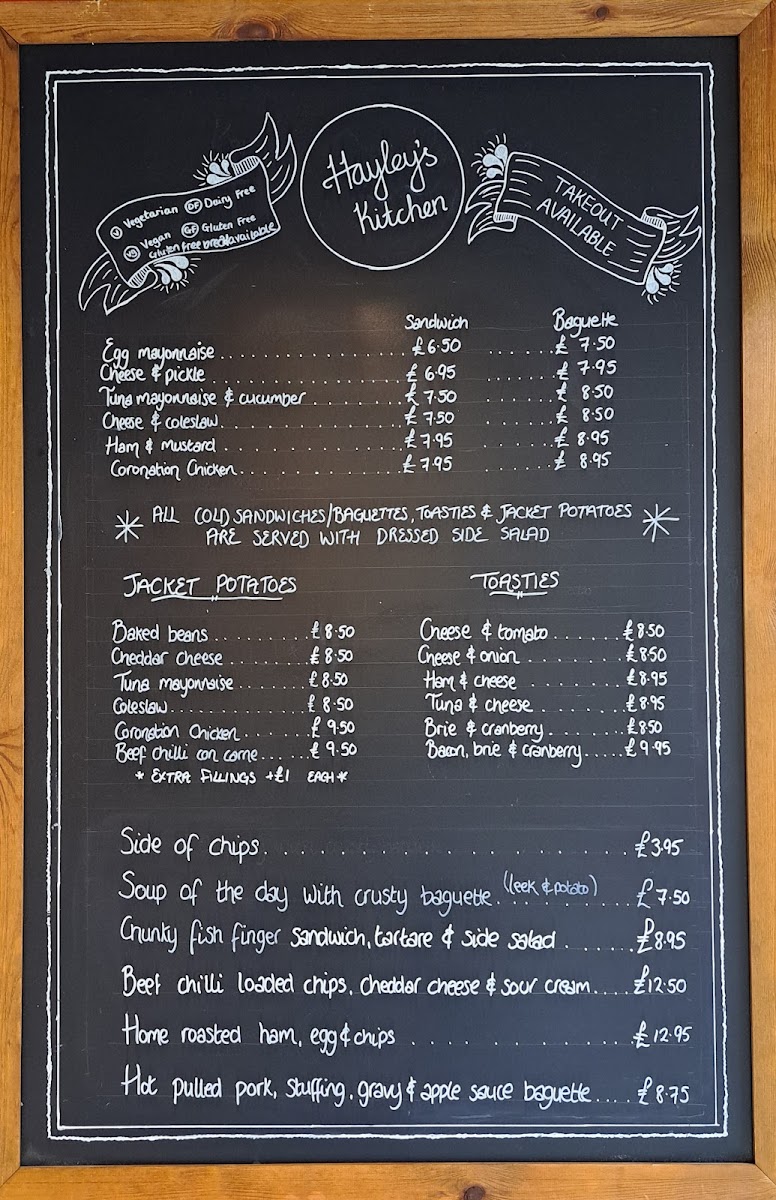 Hayley's
Kitchen
V Vegetarian DF Dairy Free
VG Vegan GF Gluten Free
Gluten free bread available
TAKEOUT
AVAILABLE
Sandwich Baguette
Egg mayonnaise .................... £6.50 ........ £ 7.50
Cheese & pickle .................... £ 6.95 ........ £ 7.95
Tuna mayonnaise & cucumber .......... £ 7.50 ........ £ 8.50
Cheese & coleslaw .................... £ 7.50 ........ £ 8.50
Ham & Mustard .................... £ 7.95 ........ £ 8.95
Coronation Chicken .................... £ 7.95 ........ £ 8.95
ALL COLD SANDWICHES/BAGUETTES, TOASTIES & JACKET POTATOES
ARE SERVED WITH DRESSED SIDE SALAD
JACKET POTATOES
Baked beans .......... £8.50
Cheddar cheese .......... £8.50
Tuna mayonnaise .......... £8.50
Coleslaw .......... £8.50
Coronation Chicken .......... £ 9.50
Beef chilli con carne ..... £ 9.50
* EXTRA FILLINGS +£1 EACH *
TOASTIES
Cheese & tomato ....... £8.50
Cheese & onion .......... £8.50
Ham & cheese .......... £8.95
Tuna & cheese .......... £8.95
Brie & cranberry .......... £8.50
Bacon, brie & cranberry ..... £9.95
Side of chips .................... £3.95
Soup of the day with crusty baguette (leek & potato) ....... £7.50
Chunky fish finger sandwich, tartare & side salad ...... £8.95
Beef chilli loaded chips, cheddar cheese & sour cream .... £12.50
Home roasted ham, egg & chips ............ £12.95
Hot pulled pork, stuffing, gravy & apple sauce baguette .... £8.75